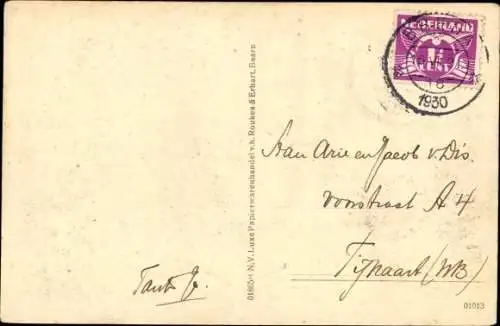 NEDERLAND
1½
CENT
1930
Aan Arie en Jacob v. Dis.
Voorstraat A 4
Fijnaart (NB)
Tante J.
01865-1 N.V. Luxe Papierwarenhandel v.h. Roukes & Erhart, Baarn
01013